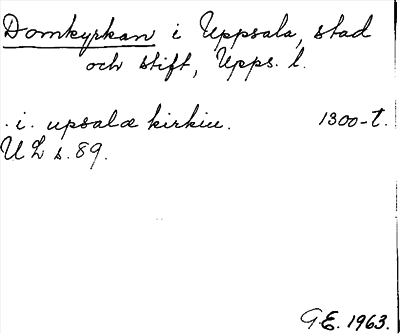 Domkyrkan i Uppsala, stad
och stift, Upps. l.
. i. upsalæ kirkiu. 1300-t.
U L s. 89.
G E. 1963.